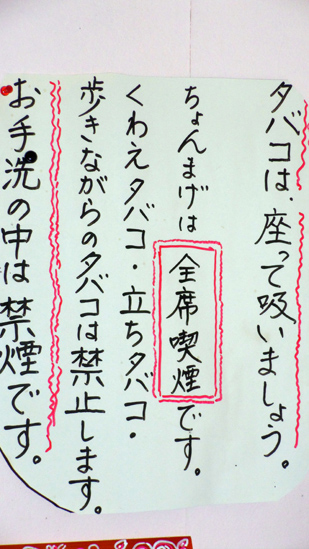 タバコは、座って吸いましょう。
ちょんまげは全席喫煙です。
くわえタバコ・立ちタバコ・
歩きながらのタバコは禁止します。
お手洗の中は禁煙です。